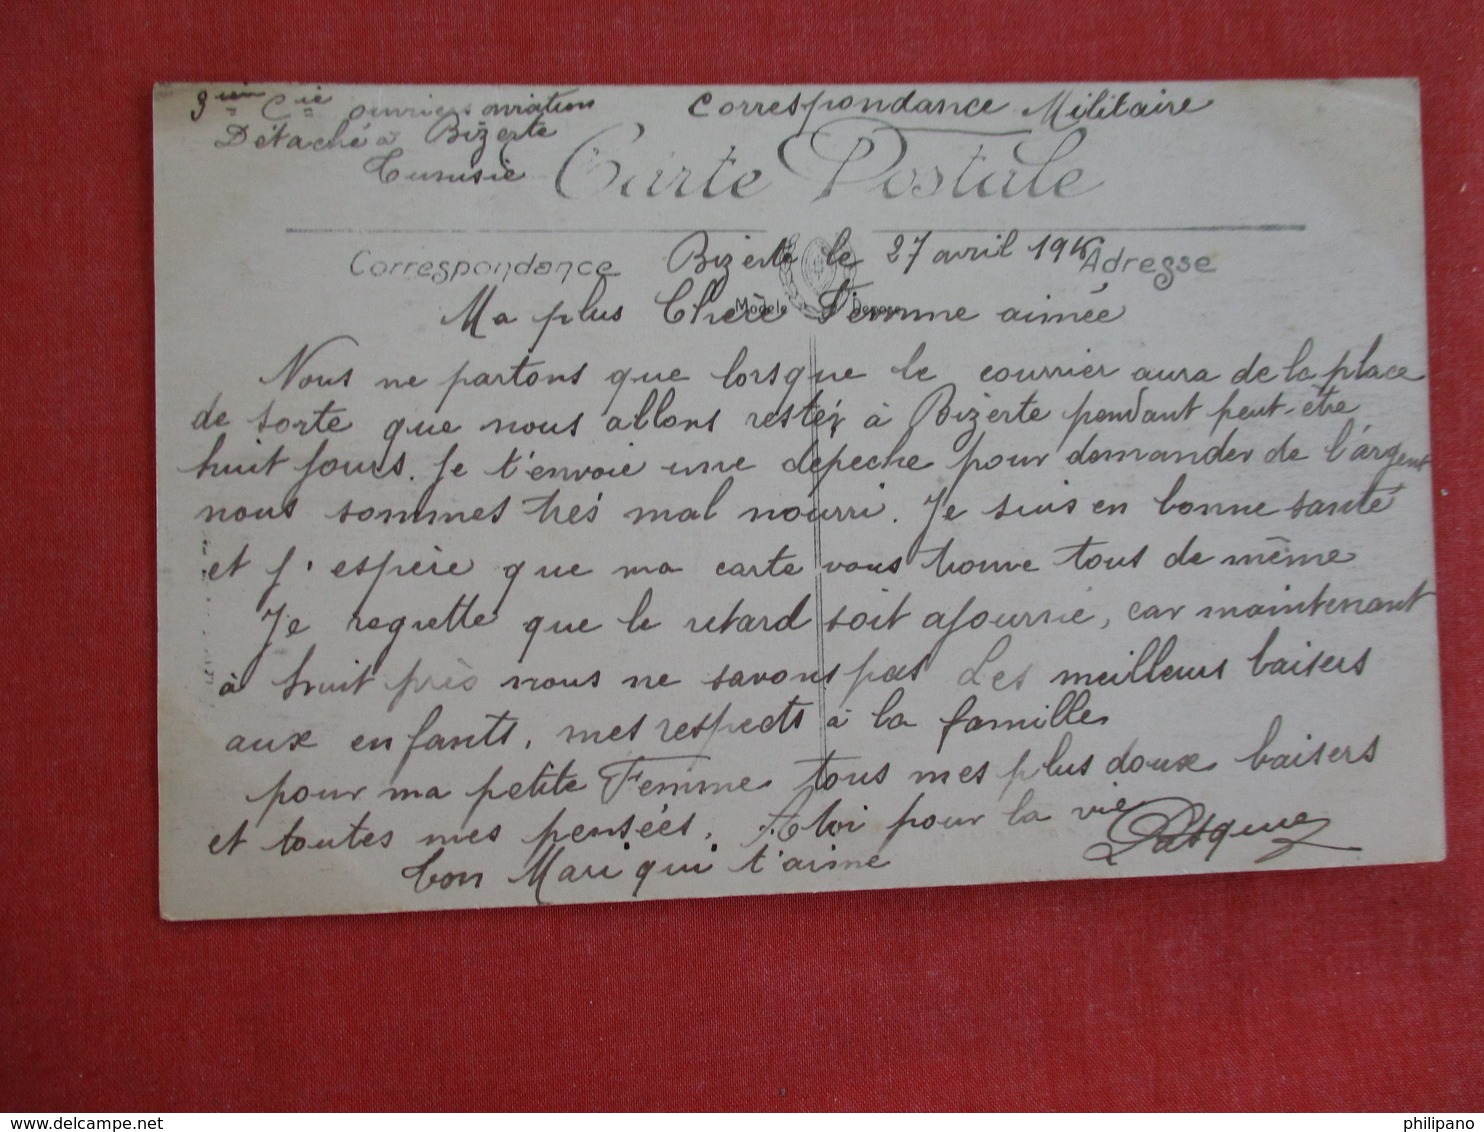 3ème Cie ouvriers aviation
Correspondance Militaire
Détaché à Bizerte
Tunisie
Carte Postale
Correspondance
Bizerte le 27 avril
Adresse
Modele Depose
Ma plus Chère Femme aimée
Nous ne partons que lorsque le courrier aura de la place
de sorte que nous allons rester à Bizerte pendant peut-être
huit jours. Je t'envoie une depeche pour demander de l'argent
nous sommes très mal nourri. Je suis en bonne santé
et j'espère que ma carte vous trouve tous de même
Je regrette que le retard soit ajourné, car maintenant
à huit près nous ne savons pas Les meilleurs baisers
aux enfants, mes respects à la famille
pour ma petite Femme tous mes plus doux baisers
et toutes mes pensées. A toi pour la vie
ton Mari qui t'aime
Pasquine
philipano